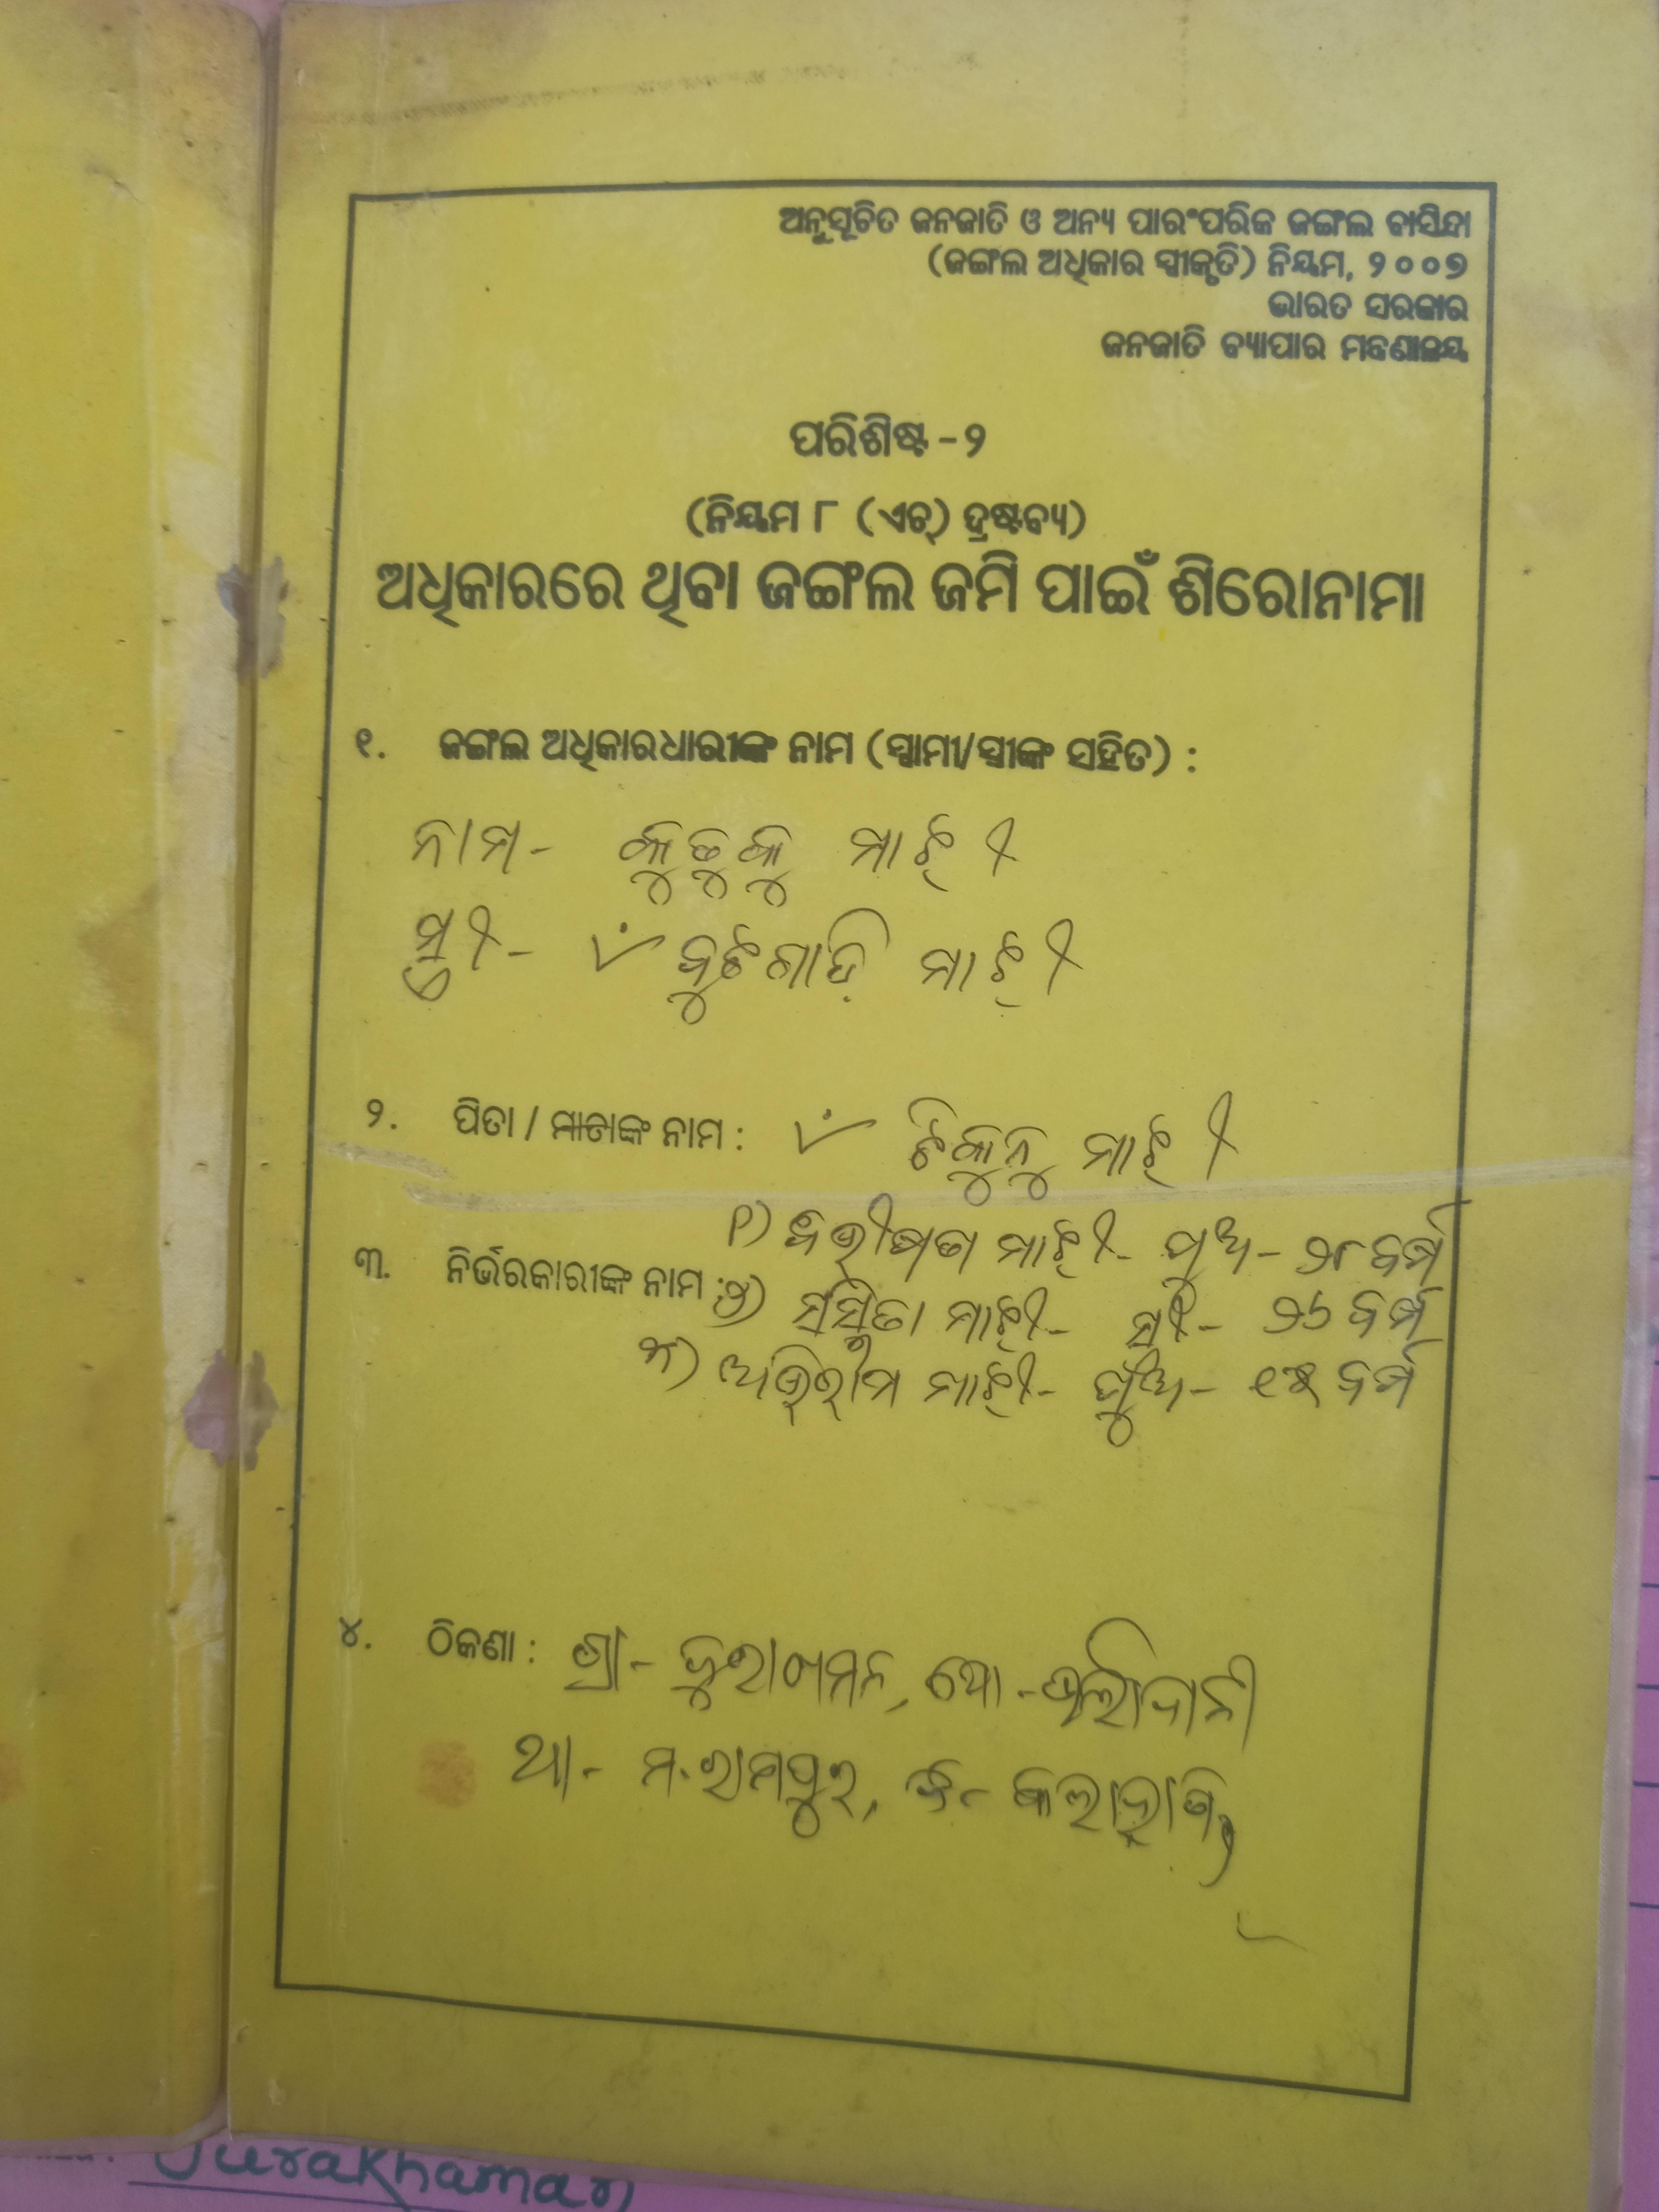 ଅନୁସୂଚିତ ଜନଜାତି ଓ ଅନ୍ୟ ପାରଂପରିକ ଜଙ୍ଗଲ ବାସିନ୍ଦା
(ଜଙ୍ଗଲ ଅଧିକାର ସ୍ୱୀକୃତି) ନିୟମ, ୨୦୦୭
ଭାରତ ସରକାର
ଜନଜାତି ବ୍ୟାପାର ମନ୍ତ୍ରଣାଳୟ
ପରିଶିଷ୍ଟ - ୨
(ନିୟମ ୮ (ଏଚ୍) ଦ୍ରଷ୍ଟବ୍ୟ)
ଅଧିକାରରେ ଥିବା ଜଙ୍ଗଲ ଜମି ପାଇଁ ଶିରୋନାମା
୧. ଜଙ୍ଗଲ ଅଧିକାରଧାରୀଙ୍କ ନାମ (ସ୍ୱାମୀ/ସ୍ତ୍ରୀଙ୍କ ସହିତ) :
ନାମ - କୁଡୁକୁ ମାଝୀ
ସ୍ତ୍ରୀ - ମାଝୀ
୨. ପିତା / ମାତାଙ୍କ ନାମ : ଟିକୁନୁ ମାଝୀ
୧) ମାଝୀ - ପୁଅ - ୨୮ ବର୍ଷ
୩. ନିର୍ଭରକାରୀଙ୍କ ନାମ : ୨) ସସ୍ମିତା ମାଝୀ - ସ୍ତ୍ରୀ - ୨୬ ବର୍ଷ
୩) ଅଭିରାମ ମାଝୀ - ପୁଅ - ବର୍ଷ
୪. ଠିକଣା : ଗ୍ରା - ଜୁରାଖମନ, ପୋ -
ଥା - ମ. ରାମପୁର, ଜି - କଳାହାଣ୍ଡି
Jurakhaman